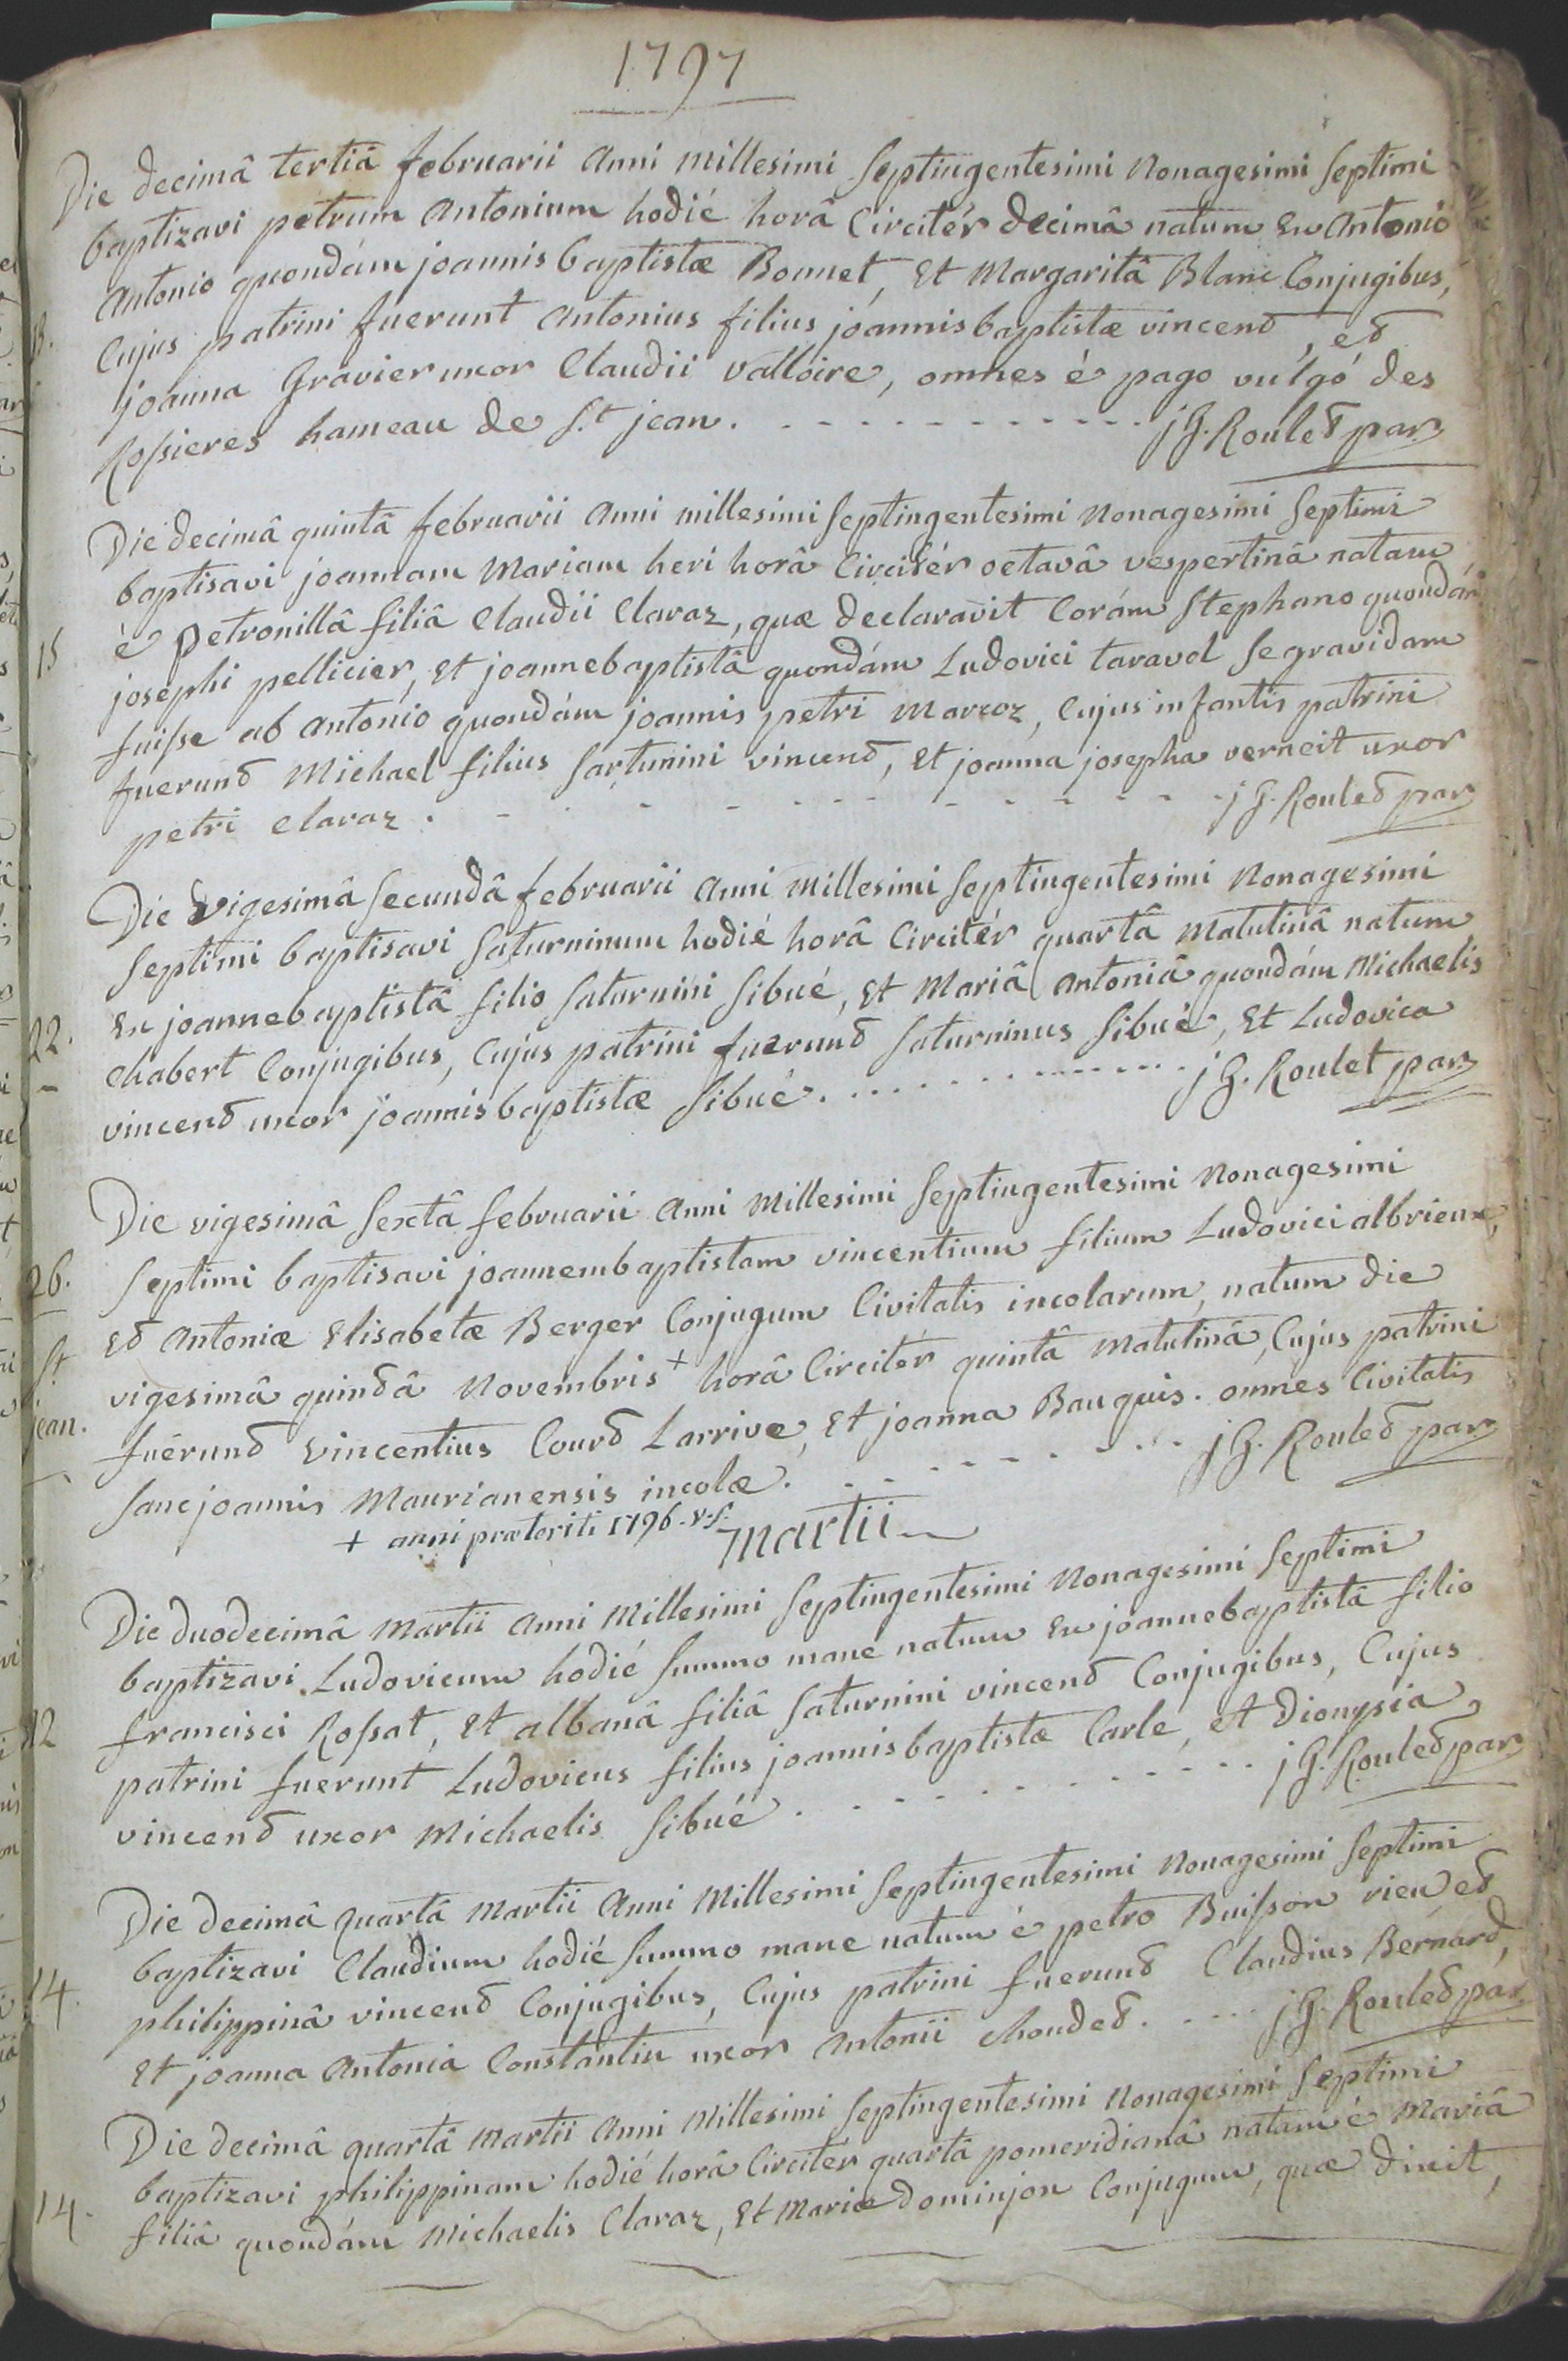 1797
Die decimâ tertiâ februarii anni millesimi Septingentesimi Nonagesimi Septimi
baptizavi petrum antonium hodié horâ Circitér decimâ natum Ex Antonio
Antonio quondám joannisbaptistæ Bonnet, Et Margaritâ Blanc Conjugibus,
13. Cujus patrini fuerunt antonius filius joannisbaptistæ vincend, et
joanna Gravier uxor Claudii valloire, omnes é pago vulgó des
Rossieres hameau de St jean. jG. Roulet par
Die decimâ quintâ februarii anni millesimi Septingentesimi Nonagesimi Septimi
baptisavi joannam Mariam heri horâ Circitér octavâ vespertinâ natam
15 é Petronillâ filiâ Claudii Claraz, quæ declaravit Corám Stephano quondám
josephi pellicier, Et joannebaptistâ quondám Ludovici taravel Se gravidam
fuisse ab antonio quondám joannis petri Marcoz, Cujus infantis patrini
fuerunt Michael filius Sarturnini vincend, Et joanna josepha verneit uxor
petri Claraz. jG. Roulet par
Die Vigesimâ Secundâ februarii anni millesimi Septingentesimi Nonagesimi
Septimi baptisavi Saturninum hodié horâ Circitér quartâ Matutinâ natum
22. Ex joannebaptistâ filio Saturnini Sibué, Et Mariâ Antoniâ quondám Michaelis
Chabert Conjugibus, Cujus patrini fuerunt Saturninus Sibué, Et Ludovica
vincend uxor joannisbaptistæ Sibué. jG. Roulet par
Die vigesimâ Sextâ februarii anni Millesimi Septingentesimi Nonagesimi
26. Septimi baptisavi joannembaptistam vincentium filium Ludovici albrieux,
Et antoniæ Elisabetæ Berger Conjugum Civitatis incolarum, natum die
St vigesimâ quintâ Novembris + horâ Circiter quintâ Matutinâ, Cujus patrini
jean. fuérunt Vincentius Court Larrive, Et joanna Bauquis. omnes Civitatis
Sanc joannis Maurianensis incolæ. jG. Roulet par
+ anni præteriti 1796. v.s.
Martii
Die duodecimâ Martii anni Millesimi Septingentesimi Nonagesimi Septimi
baptizavi Ludovicum hodié Summo mane natum Ex joannebaptistâ filio
12 francisci Rossat, Et albanâ filiâ Saturnini vincend Conjugibus, Cujus
patrini fuerunt Ludovicus filius joannisbaptistæ Carle, et dionysia
vincend uxor Michaelis Sibué. jG. Roulet par
Die decimâ quartâ Martii anni Millesimi Septingentesimi Nonagesimi Septimi
baptizavi Claudium hodié Summo mane natum é petro Buisson rieu, et
14. philippinâ vincend Conjugibus, Cujus patrini fuerunt Claudius Bernard,
Et joanna Antonia Constantin uxor Antonii Choudet. jG. Roulet par
Die decimâ quartâ Martii anni Millesimi Septingentesimi Nonagesimi Septimi
baptizavi philippinam hodié horâ Circiter quartâ pomeridianâ natam é Mariâ
14. filiâ quondám Michaelis Claraz, Et Mariæ dominjon Conjugum, quæ dixit,